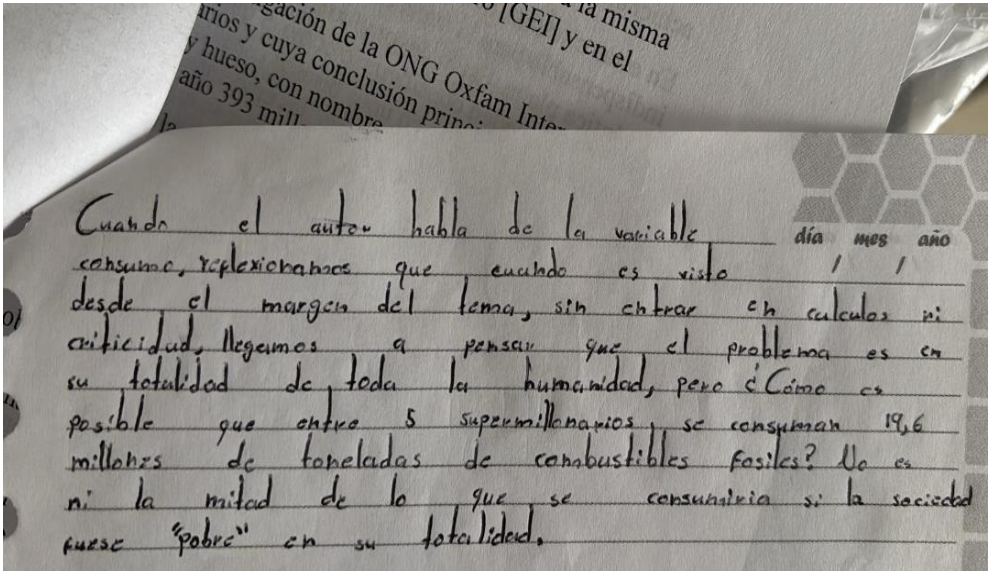 la misma
[GEI] y en el
gación de la ONG Oxfam Inte
rios y cuya conclusión princi
y hueso, con nombre
año 393 mill
la
día mes año
/ /
Cuando el autor habla de la variable
consumo, reflexionamos que cuando es visto
desde el margen del tema, sin entrar en calculos ni
criticidad, llegamos a pensar que el problema es en
su totalidad de toda la humanidad, pero ¿Cómo es
posible que entre 5 supermillonarios se consuman 19,6
millones de toneladas de combustibles fosiles? No es
ni la mitad de lo que se consumiria si la sociedad
fuese "pobre" en su totalidad.